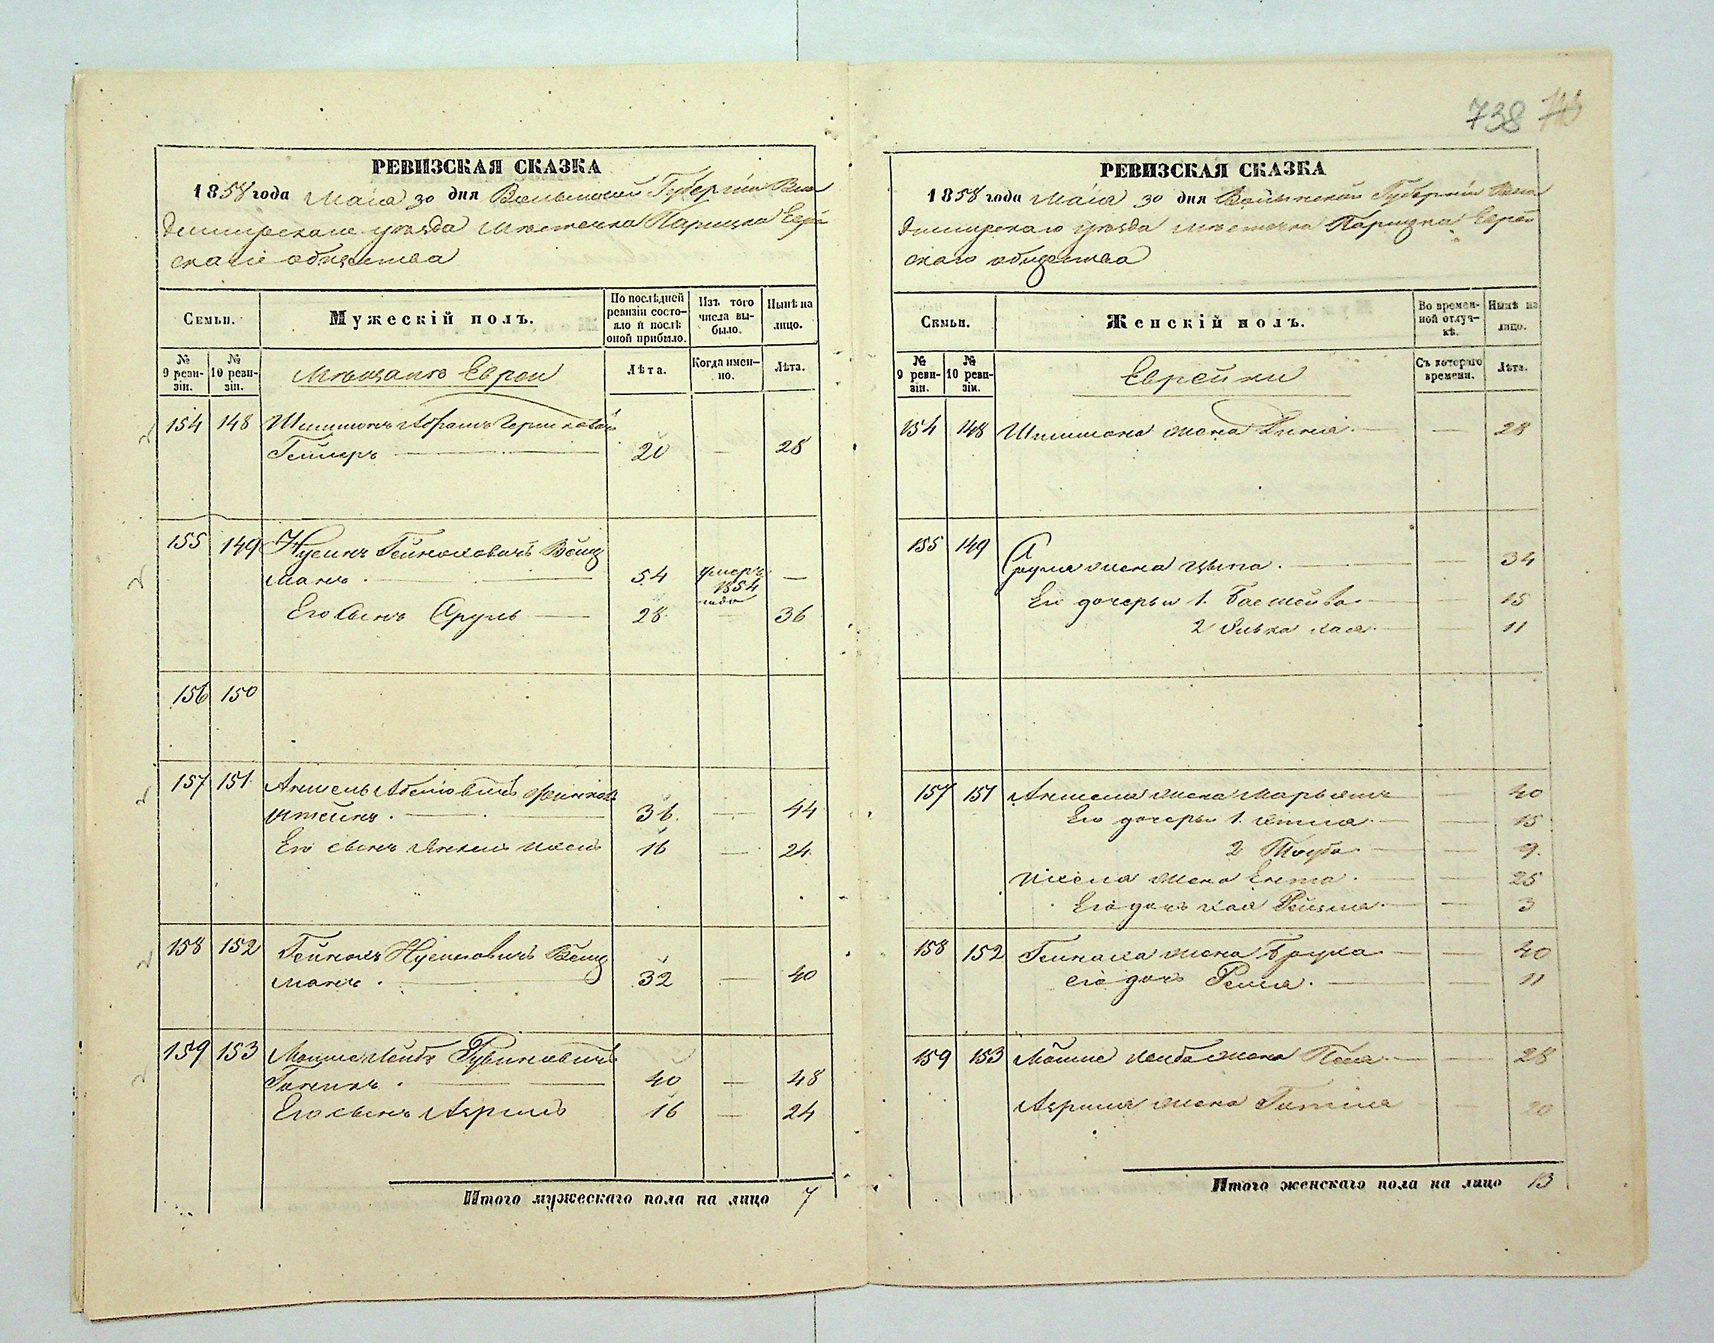 738
РЕВИЗСКАЯ СКАЗКА
1858 года Маія 30 дня Волынской Губерніи Вла
димирскаго уѣзда мѣстечка Парицка Еврей
скаго общества
Семьи.
Мужескій полъ.
По послѣдней ревизіи состояло и послѣ оной прибыло.
Изъ того числа выбыло.
Нынѣ на лицо.
№ 9 ревизіи.
№ 10 ревизіи.
Мѣщане Евреи
Лѣта.
Когда именно.
Лѣта.
154 148 Шимшонъ Абрамъ Гершковичъ
20 — 28
155 149 Нусинъ Гейноховичъ Вейц
манъ. 54 умеръ 1854 года —
Его сынъ Сруль 28 — 36
156 150
157 151 Аншель Абелiовичъ Финкель
штейнъ. 36. — 44
Его сынъ 16 — 24
158 152 Гейнохъ Нусиновичъ Вейц
манъ. 32 — 40
159 153 Мошке Лейба Рувиновичъ
40 — 48
Его сынъ 16 — 24
Итого мужескаго пола на лицо 7
РЕВИЗСКАЯ СКАЗКА
1858 года Маія 30 дня Волынской Губерніи Вла
димирскаго уѣзда мѣстечка Парицка Еврей
скаго общества
Семьи.
Женскій полъ.
Во временной отлучкѣ.
Нынѣ на лицо.
№ 9 ревизіи.
№ 10 ревизіи.
Еврейки
Съ котораго времени.
Лѣта.
154 148 Шимшона жена — 28
155 149 Сруля жена Цыпа. — 34
Его дочери 1. Басшейва — 15
2 Ривка Хая — 11
157 151 Аншеля жена Марьямъ — 40
Его дочери 1. — 15
2 Тауба — 9.
жена Ента. — 25
Его дочь Хая Рейзля. — 3
158 152 Гейноха жена Бруха — 40
его дочь — 11
159 153 Мошке Лейба жена Песя — 28
жена Гитля — 20
Итого женскаго пола на лицо 13